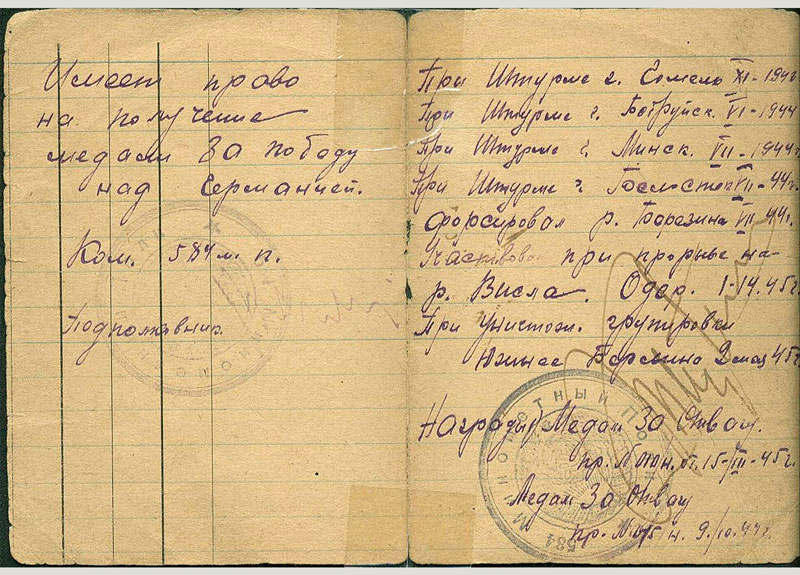 Имеет право
на получение
медали За победу
над Германией.
Ком. 584 м. п.
Подполковник
При Штурме г. Гомель XI-1943г
При Штурме г. Бобруйск. VI-1944
При Штурме г. Минск. VII-1944г
При Штурме г. Белосток VII-44г.
форсировал р. Березина VII.44г.
Участвовал при прорыве на
р. Висла. Одер. 1-14.45г.
При Уничтож. групировки
Южнее Берлина 2 мая 45г
Награждён Медал За Отваг.
пр. от. 15-III-45г.
Медал За Отваг
пр. 9/10.44г.
МИНОМЕТНЫЙ ПО
584